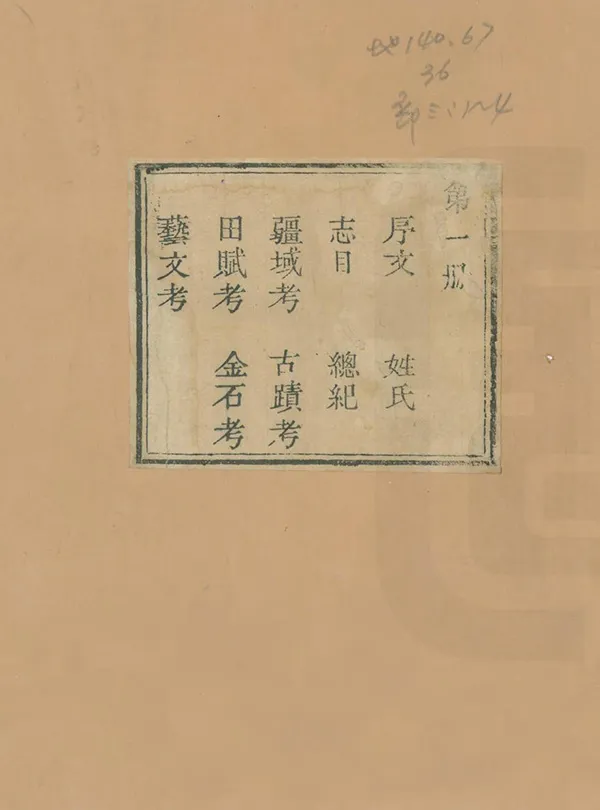 地140.67
36
部三:1~4
第一册
序文 姓氏
志目 總紀
疆域考 古蹟考
田賦考 金石考
藝文考